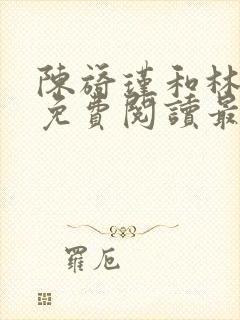 陳旖瑾和林
免費閱讀最
羅厄